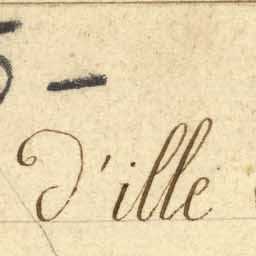 5 -
d'ille